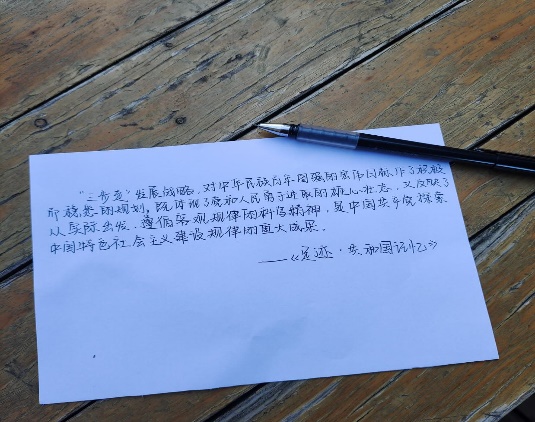 “三步走”发展战略，对中华民族百年图强的宏伟目标作了积极
而稳妥的规划，既体现了党和人民勇于进取的雄心壮志，又反映了
从实际出发、遵循客观规律的科学精神，是中国共产党探索
中国特色社会主义建设规律的重大成果。
——《足迹·共和国记忆》